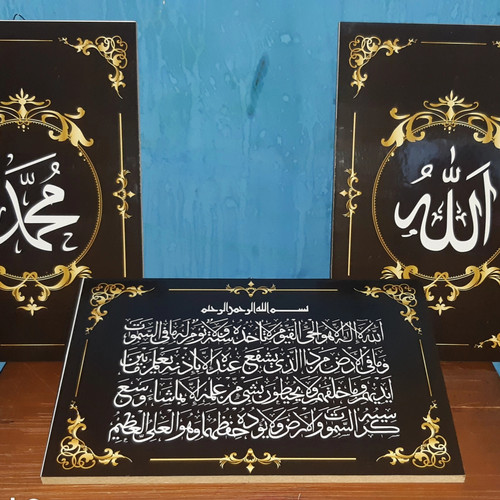 الله
محمد
بسم الله الرحمن الرحيم
الله لا إله إلا هو الحي القيوم لا تأخذه سنة ولا نوم له ما في السموات
وما في الارض من ذا الذي يشفع عنده الا باذنه يعلم ما بين
ايديهم وما خلفهم ولا يحيطون بشيء من علمه الا بما شاء وسع
كرسيه السموات والارض ولا يؤده حفظهما وهو العلي العظيم